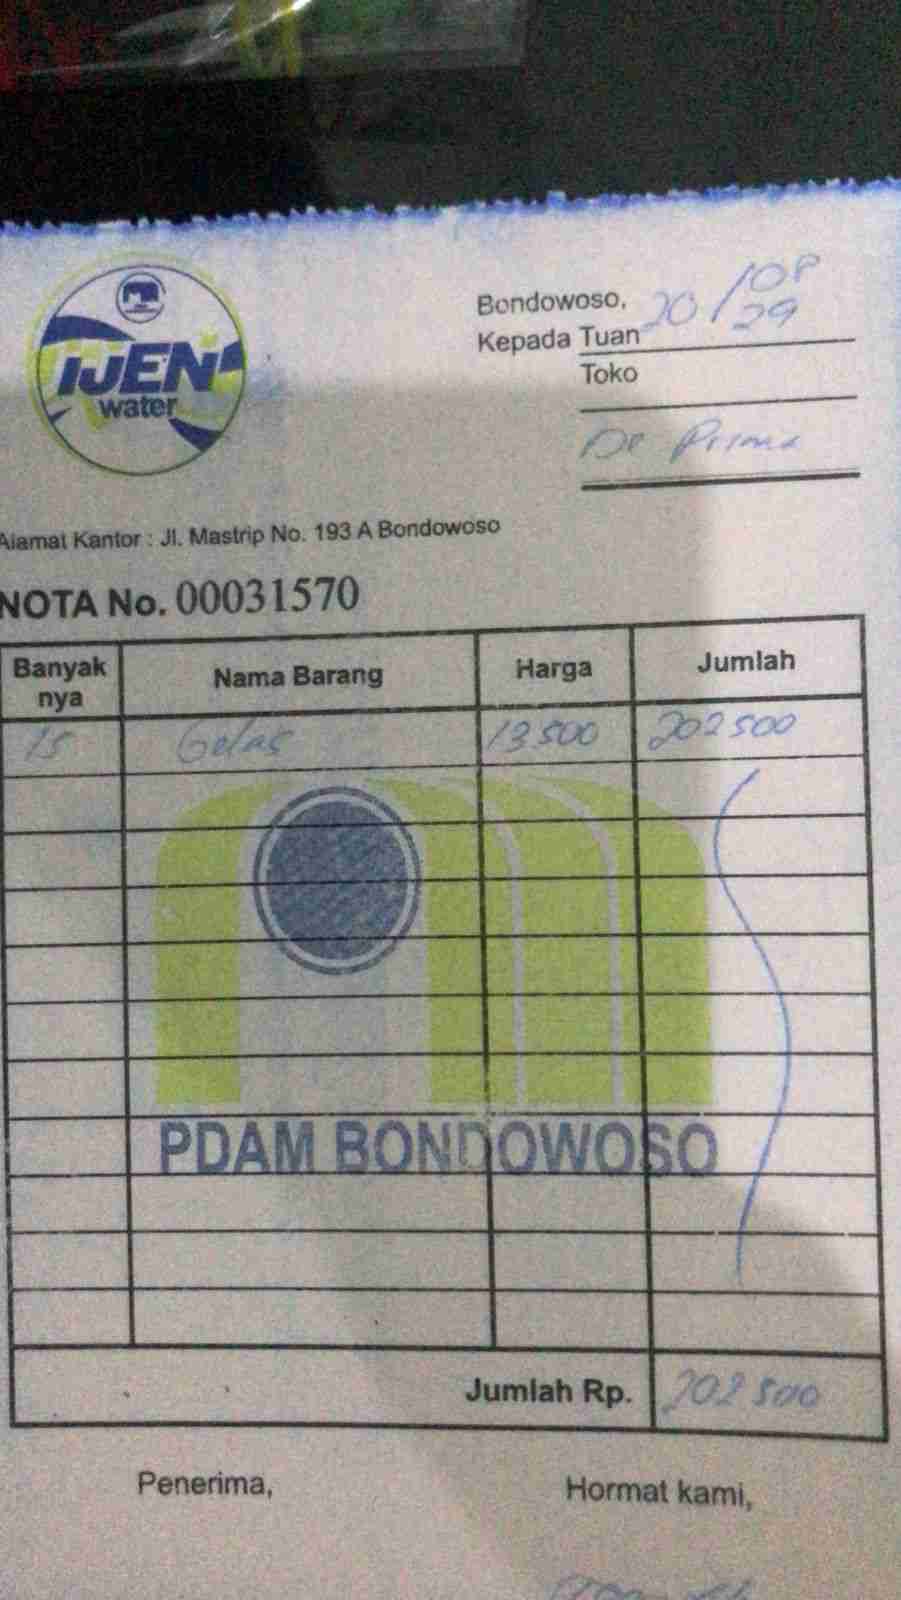 IJEN
water
Bondowoso, 20/08
29
Kepada Tuan
Toko
De Prima
Alamat Kantor : Jl. Mastrip No. 193 A Bondowoso
NOTA No. 00031570
Banyak nya Nama Barang Harga Jumlah
15 Gelas 13500 202500
PDAM BONDOWOSO
Jumlah Rp. 202500
Penerima, Hormat kami,